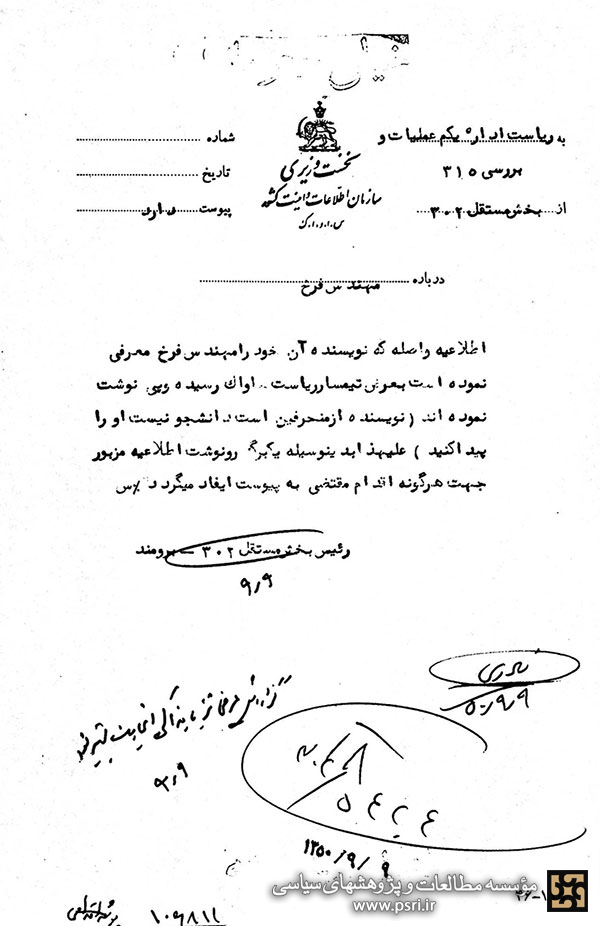 به ریاست اداره یکم عملیات و
بررسی ۳۱۵
از بخش مستقل ۳۰۲
نخست وزیری
سازمان اطلاعات و امنیت کشور
س.ا.و.ا.ک
شماره
تاریخ
پیوست دارد
درباره مهندس فرخ
اطلاعیه واصله که نویسنده آن خود را مهندس فرخ معرفی
نموده است بعرض تیمسار ریاست ساواک رسیده و پی نوشت
نموده اند (نویسنده از منحرفین است دانشجو نیست او را
پیدا کنید) علیهذا بدینوسیله یکبرگ رونوشت اطلاعیه مزبور
جهت هرگونه اقدام مقتضی به پیوست ایفاد میگردد
رئیس بخش مستقل ۳۰۲ - برومند
۹٫۹
۵۰٫۹٫۹
۹٫۹
۱۳۵۰٫۹٫۹
مؤسسه مطالعات و پژوهشهای سیاسی
www.psri.ir
۱۰۶۸۱۱